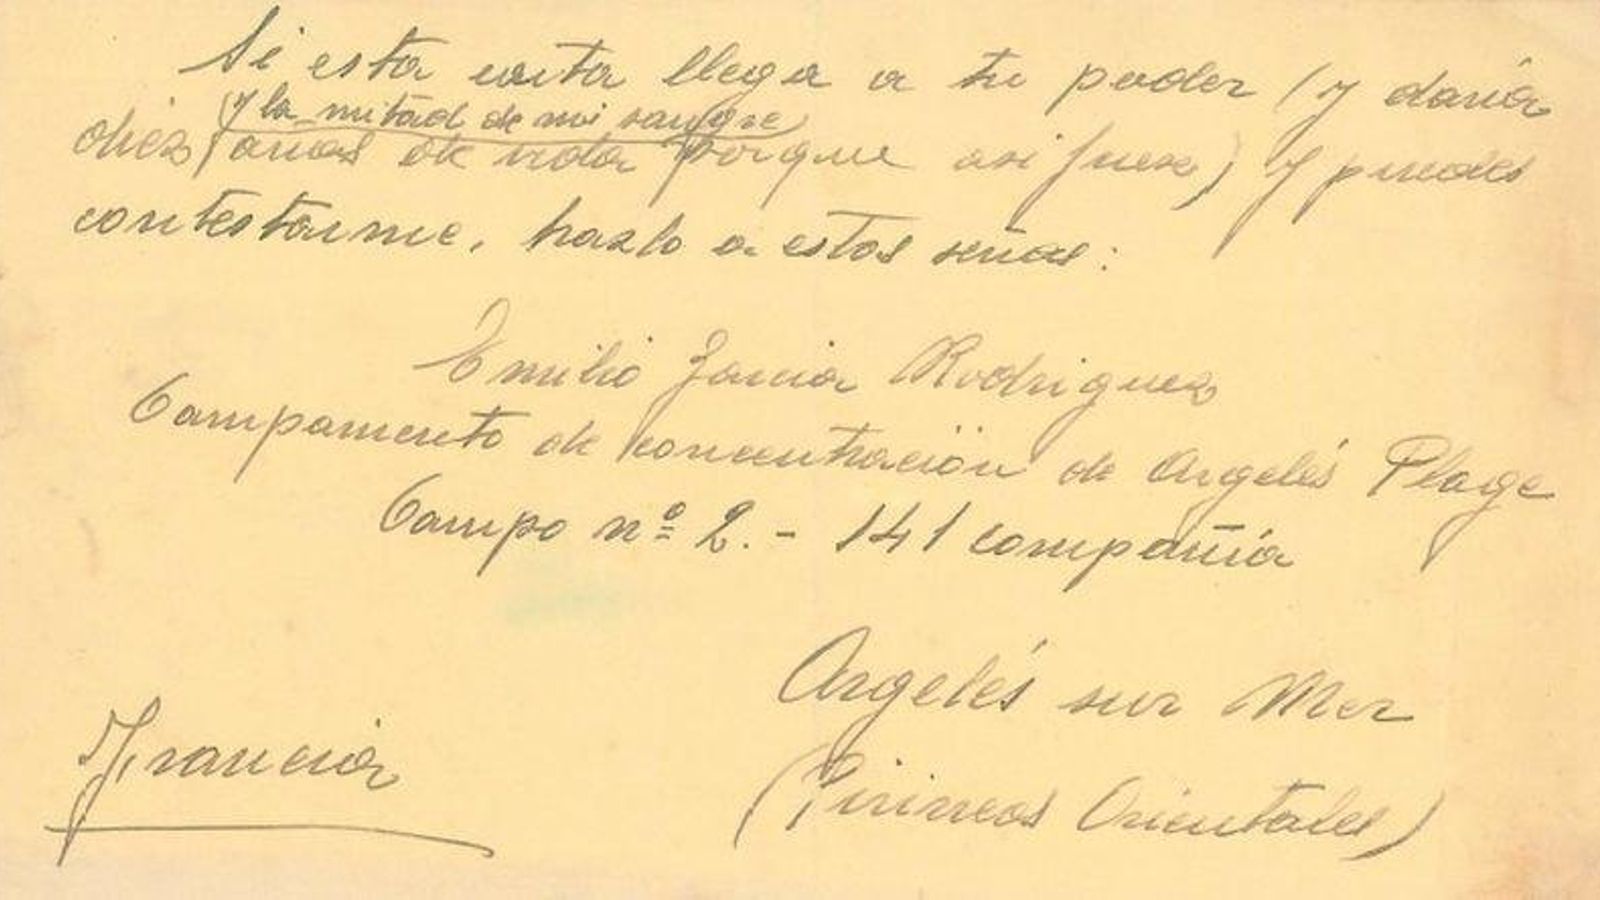 Si esta carta llega a tu poder (y daría
(y la mitad de mi sangre)
diez años de vida porque asi fuese) y puedes
contestarme, hazlo a estas señas:
Emilio Garcia Rodriguez
Campamento de concentración de Argelés Plage
Campo nº 2. - 141 compañía
Argelés sur Mer
Francia
(Pirineos Orientales)